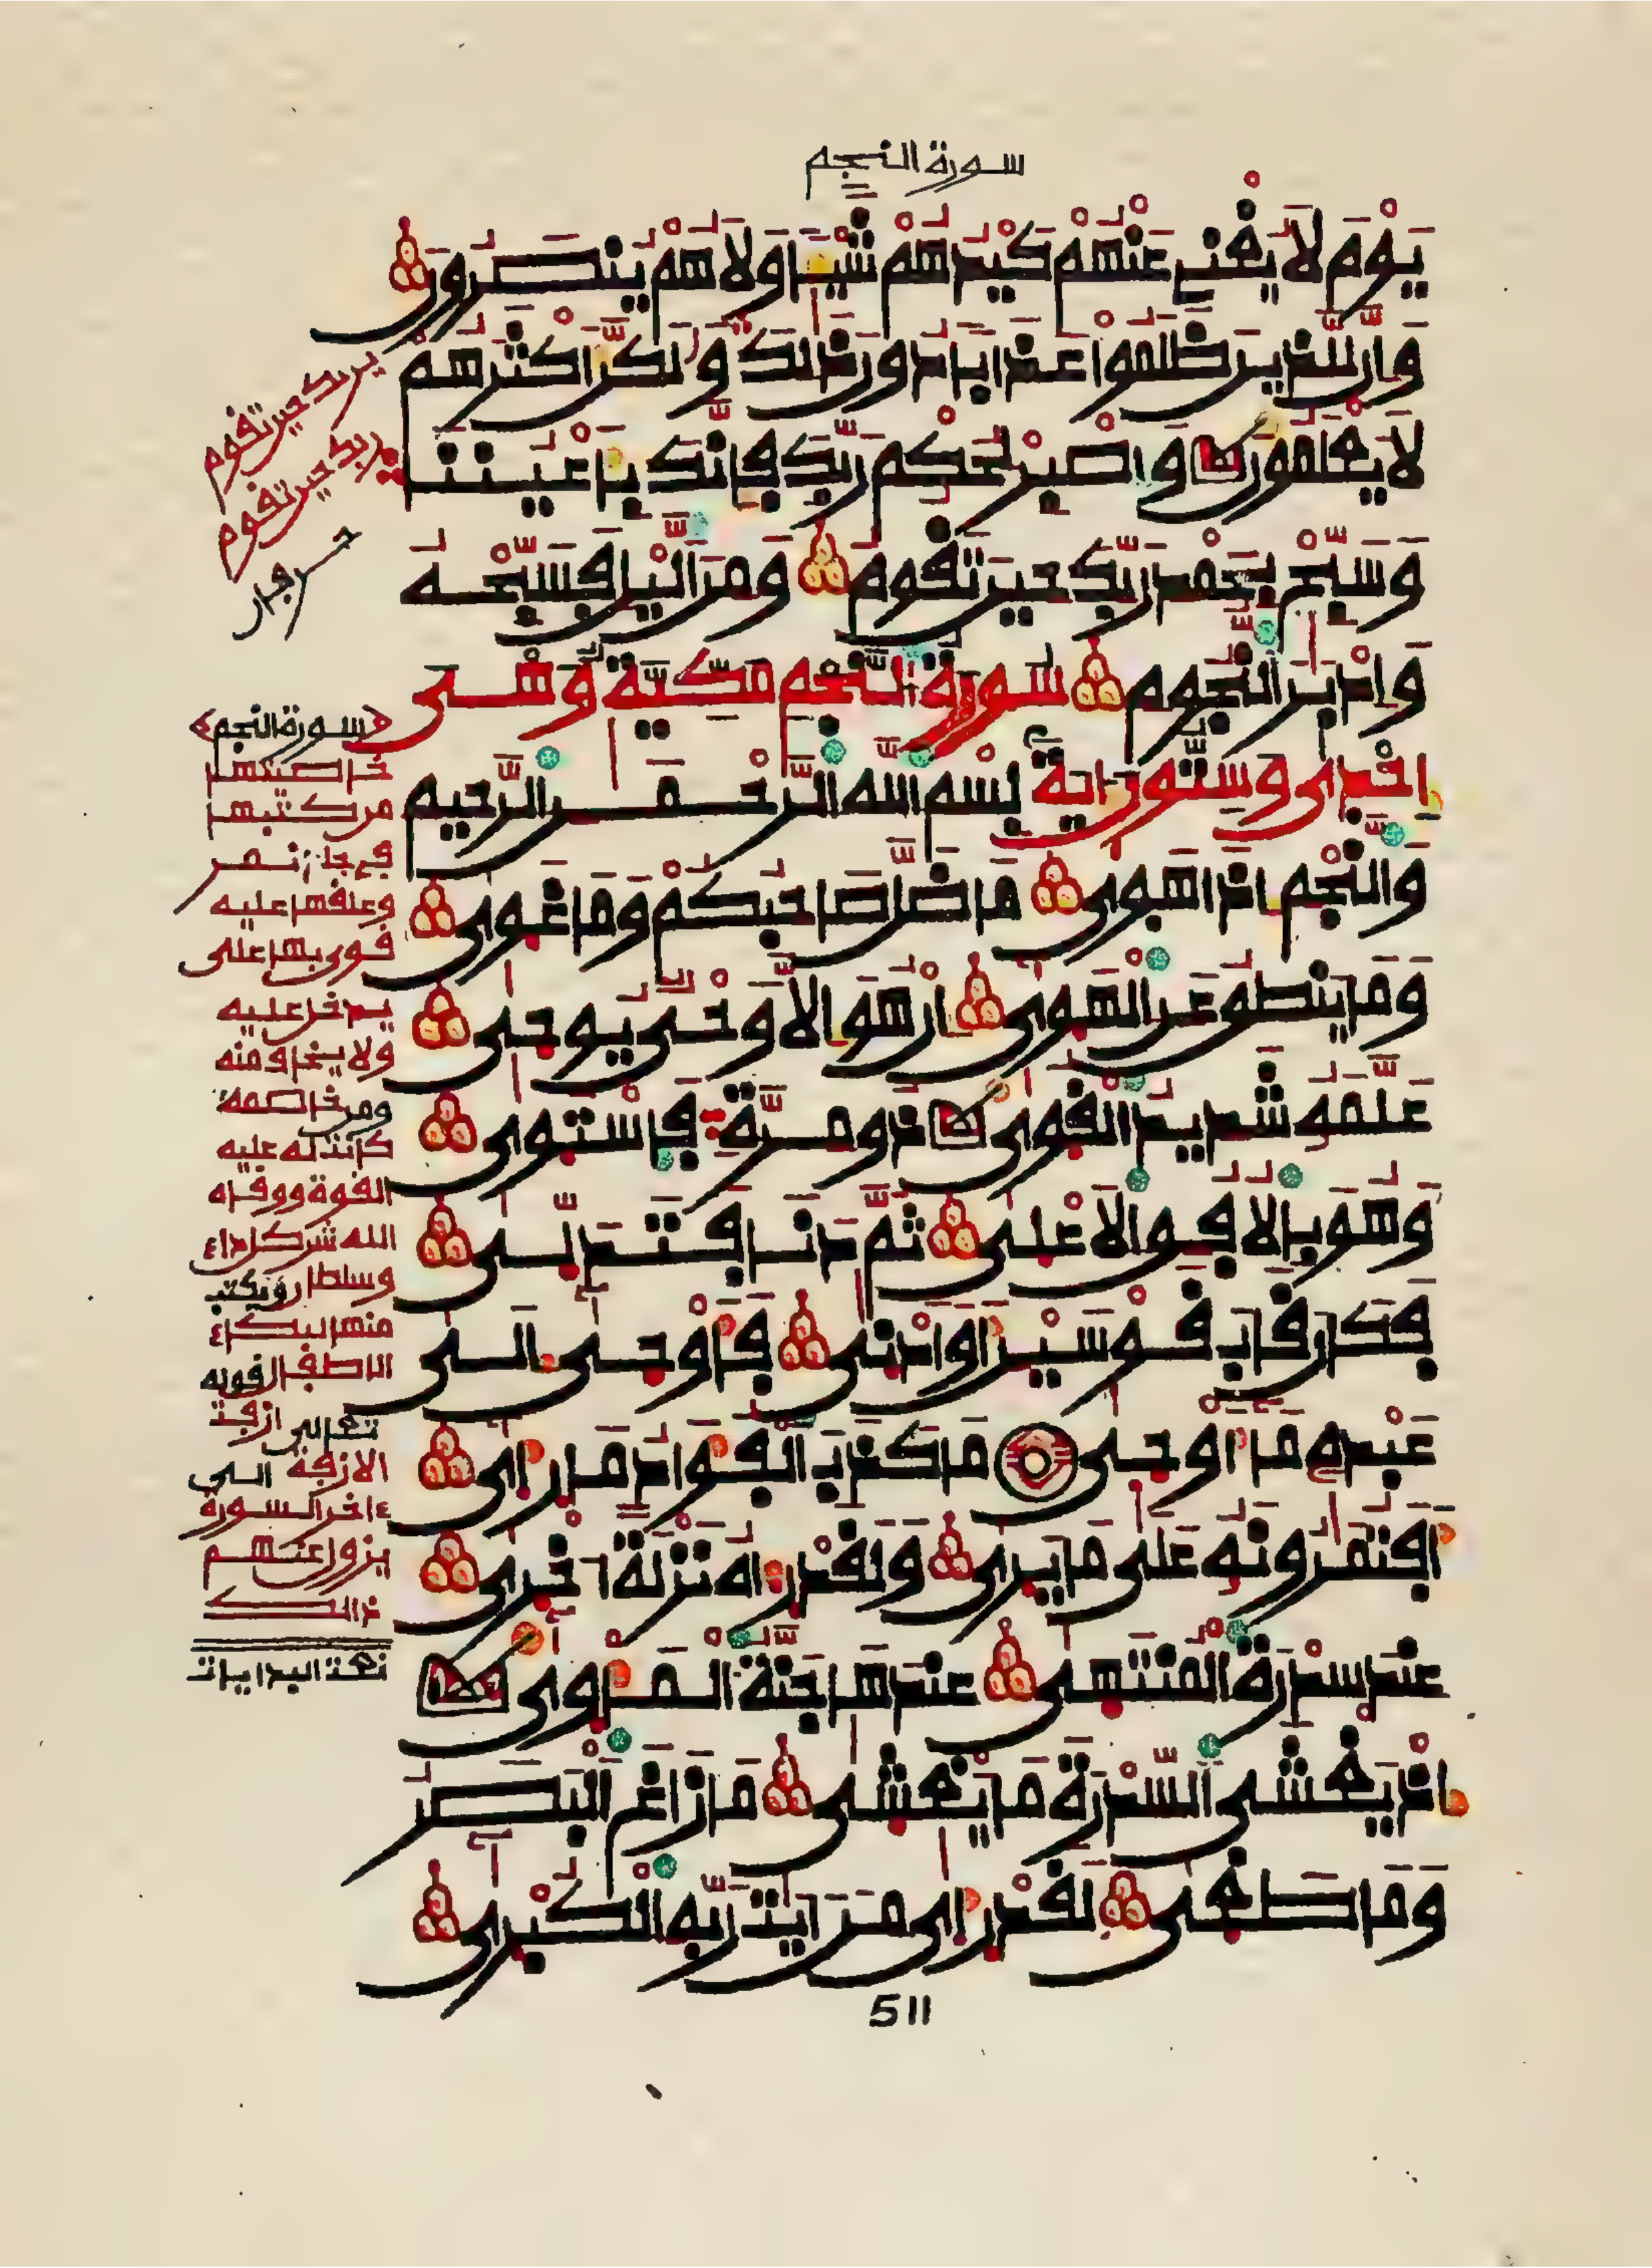 سورة النجم
يَوْمَ لَا يُغْنِے عَنْهُمْ كَيْدُهُمْ شَيْـًٔا وَلَا هُمْ يُنصَرُونَ
وَإِنَّ لِلَّذِينَ ظَلَمُواْ عَذَابًا دُونَ ذَٰلِكَ وَلَٰكِنَّ أَكْثَرَهُمْ
لَا يَعْلَمُونَ وَاصْبِرْ لِحُكْمِ رَبِّكَ فَإِنَّكَ بِأَعْيُنِنَا
وَسَبِّحْ بِحَمْدِ رَبِّكَ حِينَ تَقُومُ وَمِنَ اَلَّيْلِ فَسَبِّحْهُ
وَإِدْبَٰرَ اَلنُّجُومِ سُورَةُ النَّجْمِ مَكِّيَّةٌ وَهْىَ
إِحْدَىٰ وَسِتُّونَ ءَايَةً بِسْمِ اِللَّهِ اِلرَّحْمَٰنِ اِلرَّحِيمِ
وَالنَّجْمِ إِذَا هَوَىٰ مَا ضَلَّ صَاحِبُكُمْ وَمَا غَوَىٰ
وَمَا يَنطِقُ عَنِ اِلْهَوَىٰ إِنْ هُوَ إِلَّا وَحْىٌ يُوحَىٰ
عَلَّمَهُ شَدِيدُ اُلْقُوَىٰ ذُو مِرَّةٍ فَاسْتَوَىٰ
وَهُوَ بِالْأُفُقِ اِلْأَعْلَىٰ ثُمَّ دَنَا فَتَدَلَّىٰ
فَكَانَ قَابَ قَوْسَيْنِ أَوْ أَدْنَىٰ فَأَوْحَىٰ إِلَىٰ
عَبْدِهِ مَا أَوْحَىٰ مَا كَذَبَ اَلْفُؤَادُ مَا رَأَىٰ
أَفَتُمَٰرُونَهُ عَلَىٰ مَا يَرَىٰ وَلَقَدْ رَءَاهُ نَزْلَةً أُخْرَىٰ
عِندَ سِدْرَةِ اِلْمُنتَهَىٰ عِندَهَا جَنَّةُ اُلْمَأْوَىٰ
إِذْ يَغْشَى اَلسِّدْرَةَ مَا يَغْشَىٰ مَا زَاغَ اَلْبَصَرُ
وَمَا طَغَىٰ لَقَدْ رَأَىٰ مِنْ ءَايَٰتِ رَبِّهِ اِلْكُبْرَىٰ
511
ربك حين تقوم
ربك حين تقوم
سورة النجم
خاصيتها
من كتبها
في جلد نمر
وعلقها عليه
قوى بها على
يدخل عليه
ولا يخاف منه
ومن خاصمه
كانت له عليه
القوة ووقاه
الله شر كل داع
وسلطان ويكتب
منها لبكاء
الاطفال قوله
تعالى ازفت
الازفة الى
اخر السورة
يزول عنهم
ذالك